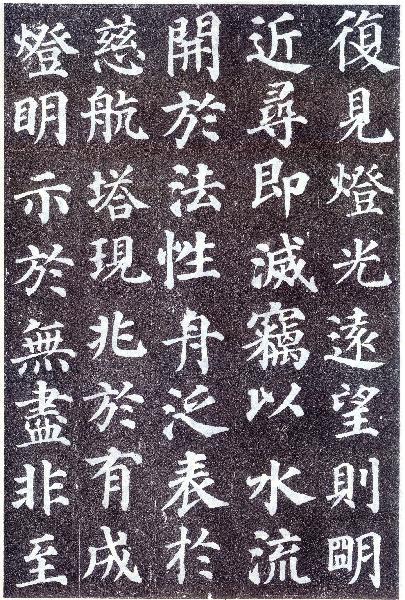 復見燈光遠望則朙
近尋即滅竊以水流
開於法性舟泛表於
慈航塔現兆於有成
燈眀示於無盡非至